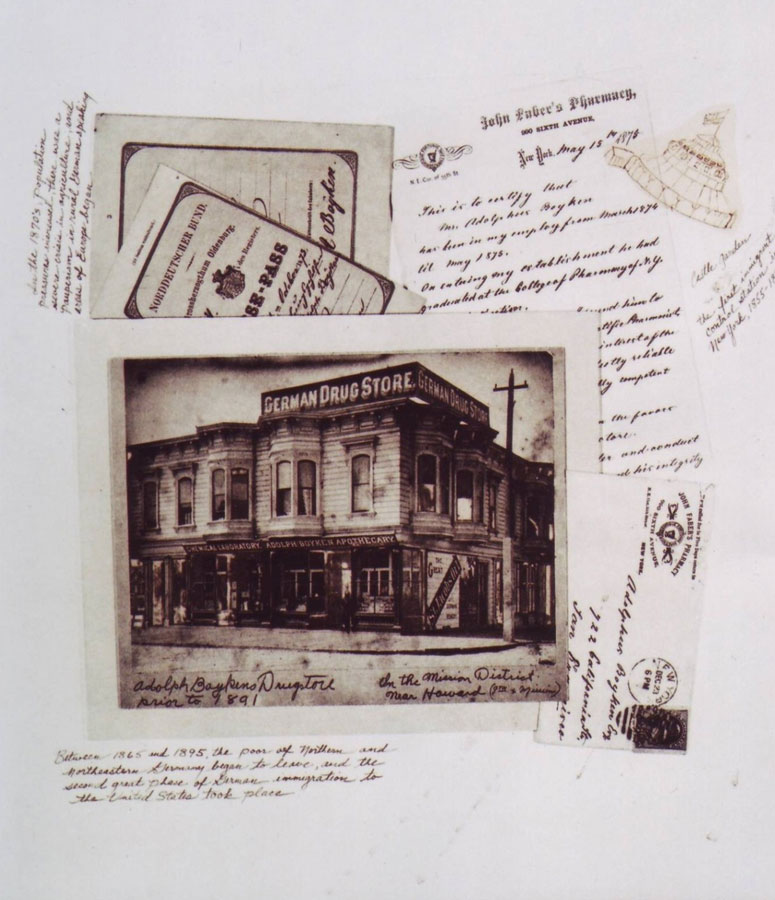 In the 1870's Population
pressures increased, there was a
severe crisis in agriculture, and
pauperism in rural German speaking
areas of Europe began
NORDDEUTSCHER BUND.
Oldenburg,
SE-PASS
Boyken.
John Faber's Pharmacy,
900 SIXTH AVENUE,
New York, May 15th 1875
This is to certify that
Mr. Adolphus Boyken
has been in my employ from March 1874
til May 1875.
On entering my establishment he had
graduated at the College of Pharmacy of N.Y.
found him to
Pharmacist
interest of the
reliable
competent
the favor
and conduct
his integrity
Castle Garden
the first immigrant
control station in
New York, 1855-
GERMAN DRUG STORE. GERMAN DRUG STORE
CHEMICAL LABORATORY. ADOLPH BOYKEN APOTHECARY.
THE
GREAT
Adolph Boykens Drugstore
prior to 1891
In the Mission District
Near Howard
JOHN FABER'S PHARMACY
900 SIXTH AVENUE
NEW YORK.
Adolphus Boyken
722 California St
San
DEC 23
6 PM
Between 1865 and 1895, the poor of Northern and
Northeastern Germany began to leave, and the
second great phase of German immigration to
the United States took place